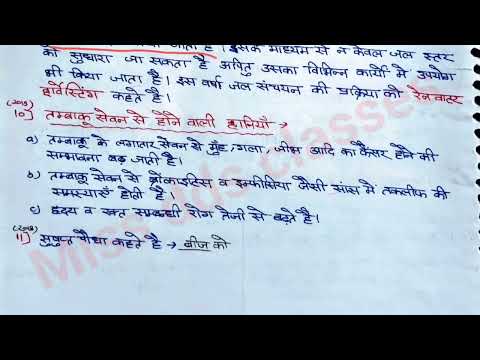 जाता है। इसके माध्यम से न केवल जल स्तर
को सुधारा जा सकता है अपितु उसका विभिन्न कार्यों में उपयोग
भी किया जाता है। इस वर्षा जल संचयन की प्रक्रिया को रेन वाटर
हार्वेस्टिंग कहते है।
(2018)
10] तम्बाकू सेवन से होने वाली हानियाँ →
a) तम्बाकू के लगातार सेवन से मुँह, गला, जीभ आदि का कैंसर होने की
सम्भावना बढ़ जाती है।
b) तम्बाकू सेवन से ब्रोंकाइटिस व इम्फीसिया जैसी सांस मे तकलीफ की
समस्याएँ होती है।
c) हृदय व रक्त सम्बन्धी रोग तेजी से बढ़ते है।
(2018)
11] सुषुप्त पौधा कहते है → बीज को
Miss Jds classes